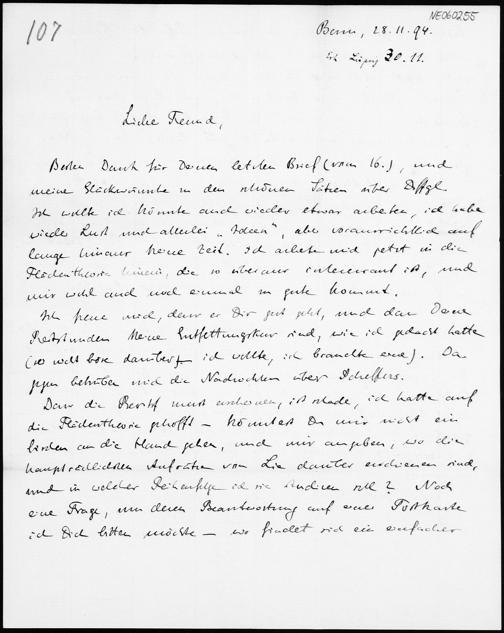 NE060255
107
Bonn, 28.11.94.
30.11.
Lieber Freund,
Besten Dank für Deinen letzten Brief (vom 16.), und
meine Glückwünsche zu den schönen Sätzen über Dffgl.
Ich wollte ich könnte auch wieder etwas arbeiten, ich habe
wieder Lust und allerlei „Ideen", aber voraussichtlich auf
lange hinaus keine Zeit. Ich arbeite mich jetzt in die
Flächentheorie hinein, die so überaus interessant ist, und
mir wohl auch noch einmal zu gute kommt.
Ich freue mich, dass es Dir gut geht, und dass Deine
Reitstunden keine Entfettungskur sind, wie ich gedacht hatte
(so wohl böse darüber ich wollte, ich brauchte eine). Da
gegen betrüben mich die Nachrichten über Scheffers.
Dass die nicht erscheinen, ist schade, ich hatte auf
die Flächentheorie gehofft — könntest Du mir nicht ein
bischen an die Hand gehen, und mir angeben, wo die
hauptsächlichsten Aufsätze von Lie darüber erschienen sind,
und in welcher Reihenfolge ich sie studieren soll? Noch
eine Frage, um deren Beantwortung auf einer Postkarte
ich Dich bitten möchte — wo findet sich ein einfacher